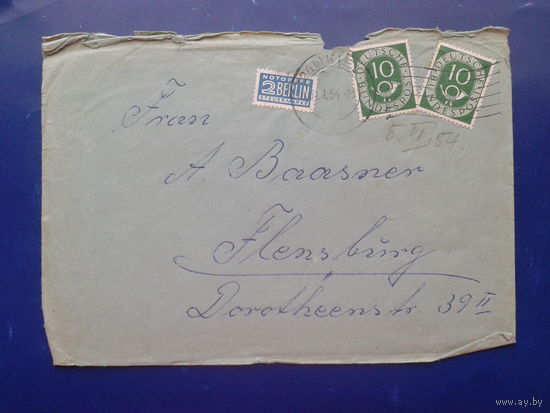 NOTOPFER
2 BERLIN
STEUERMARKE
DEUTSCHE BUNDESPOST
10
DEUTSCHE BUNDESPOST
10
5. II. 54.
Frau
A. Baasner
Flensburg
Dorotheenstr. 39 II
www.ay.by